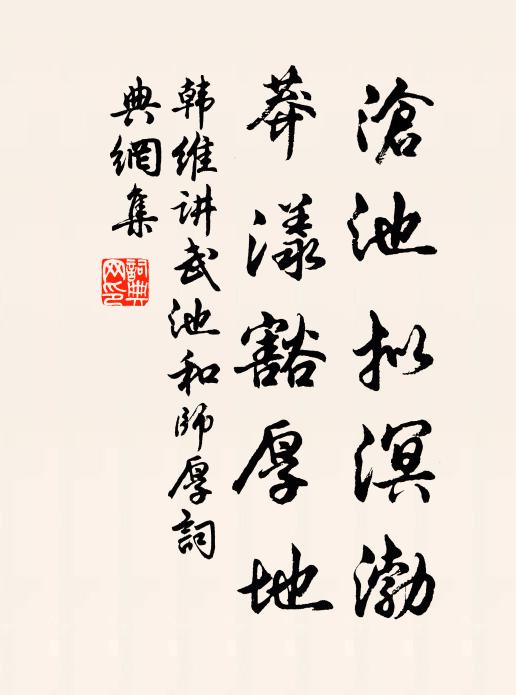 滄池拟溟渤
莽漾豁厚地
韩维讲武池和师厚詞
典網集
詞典網印